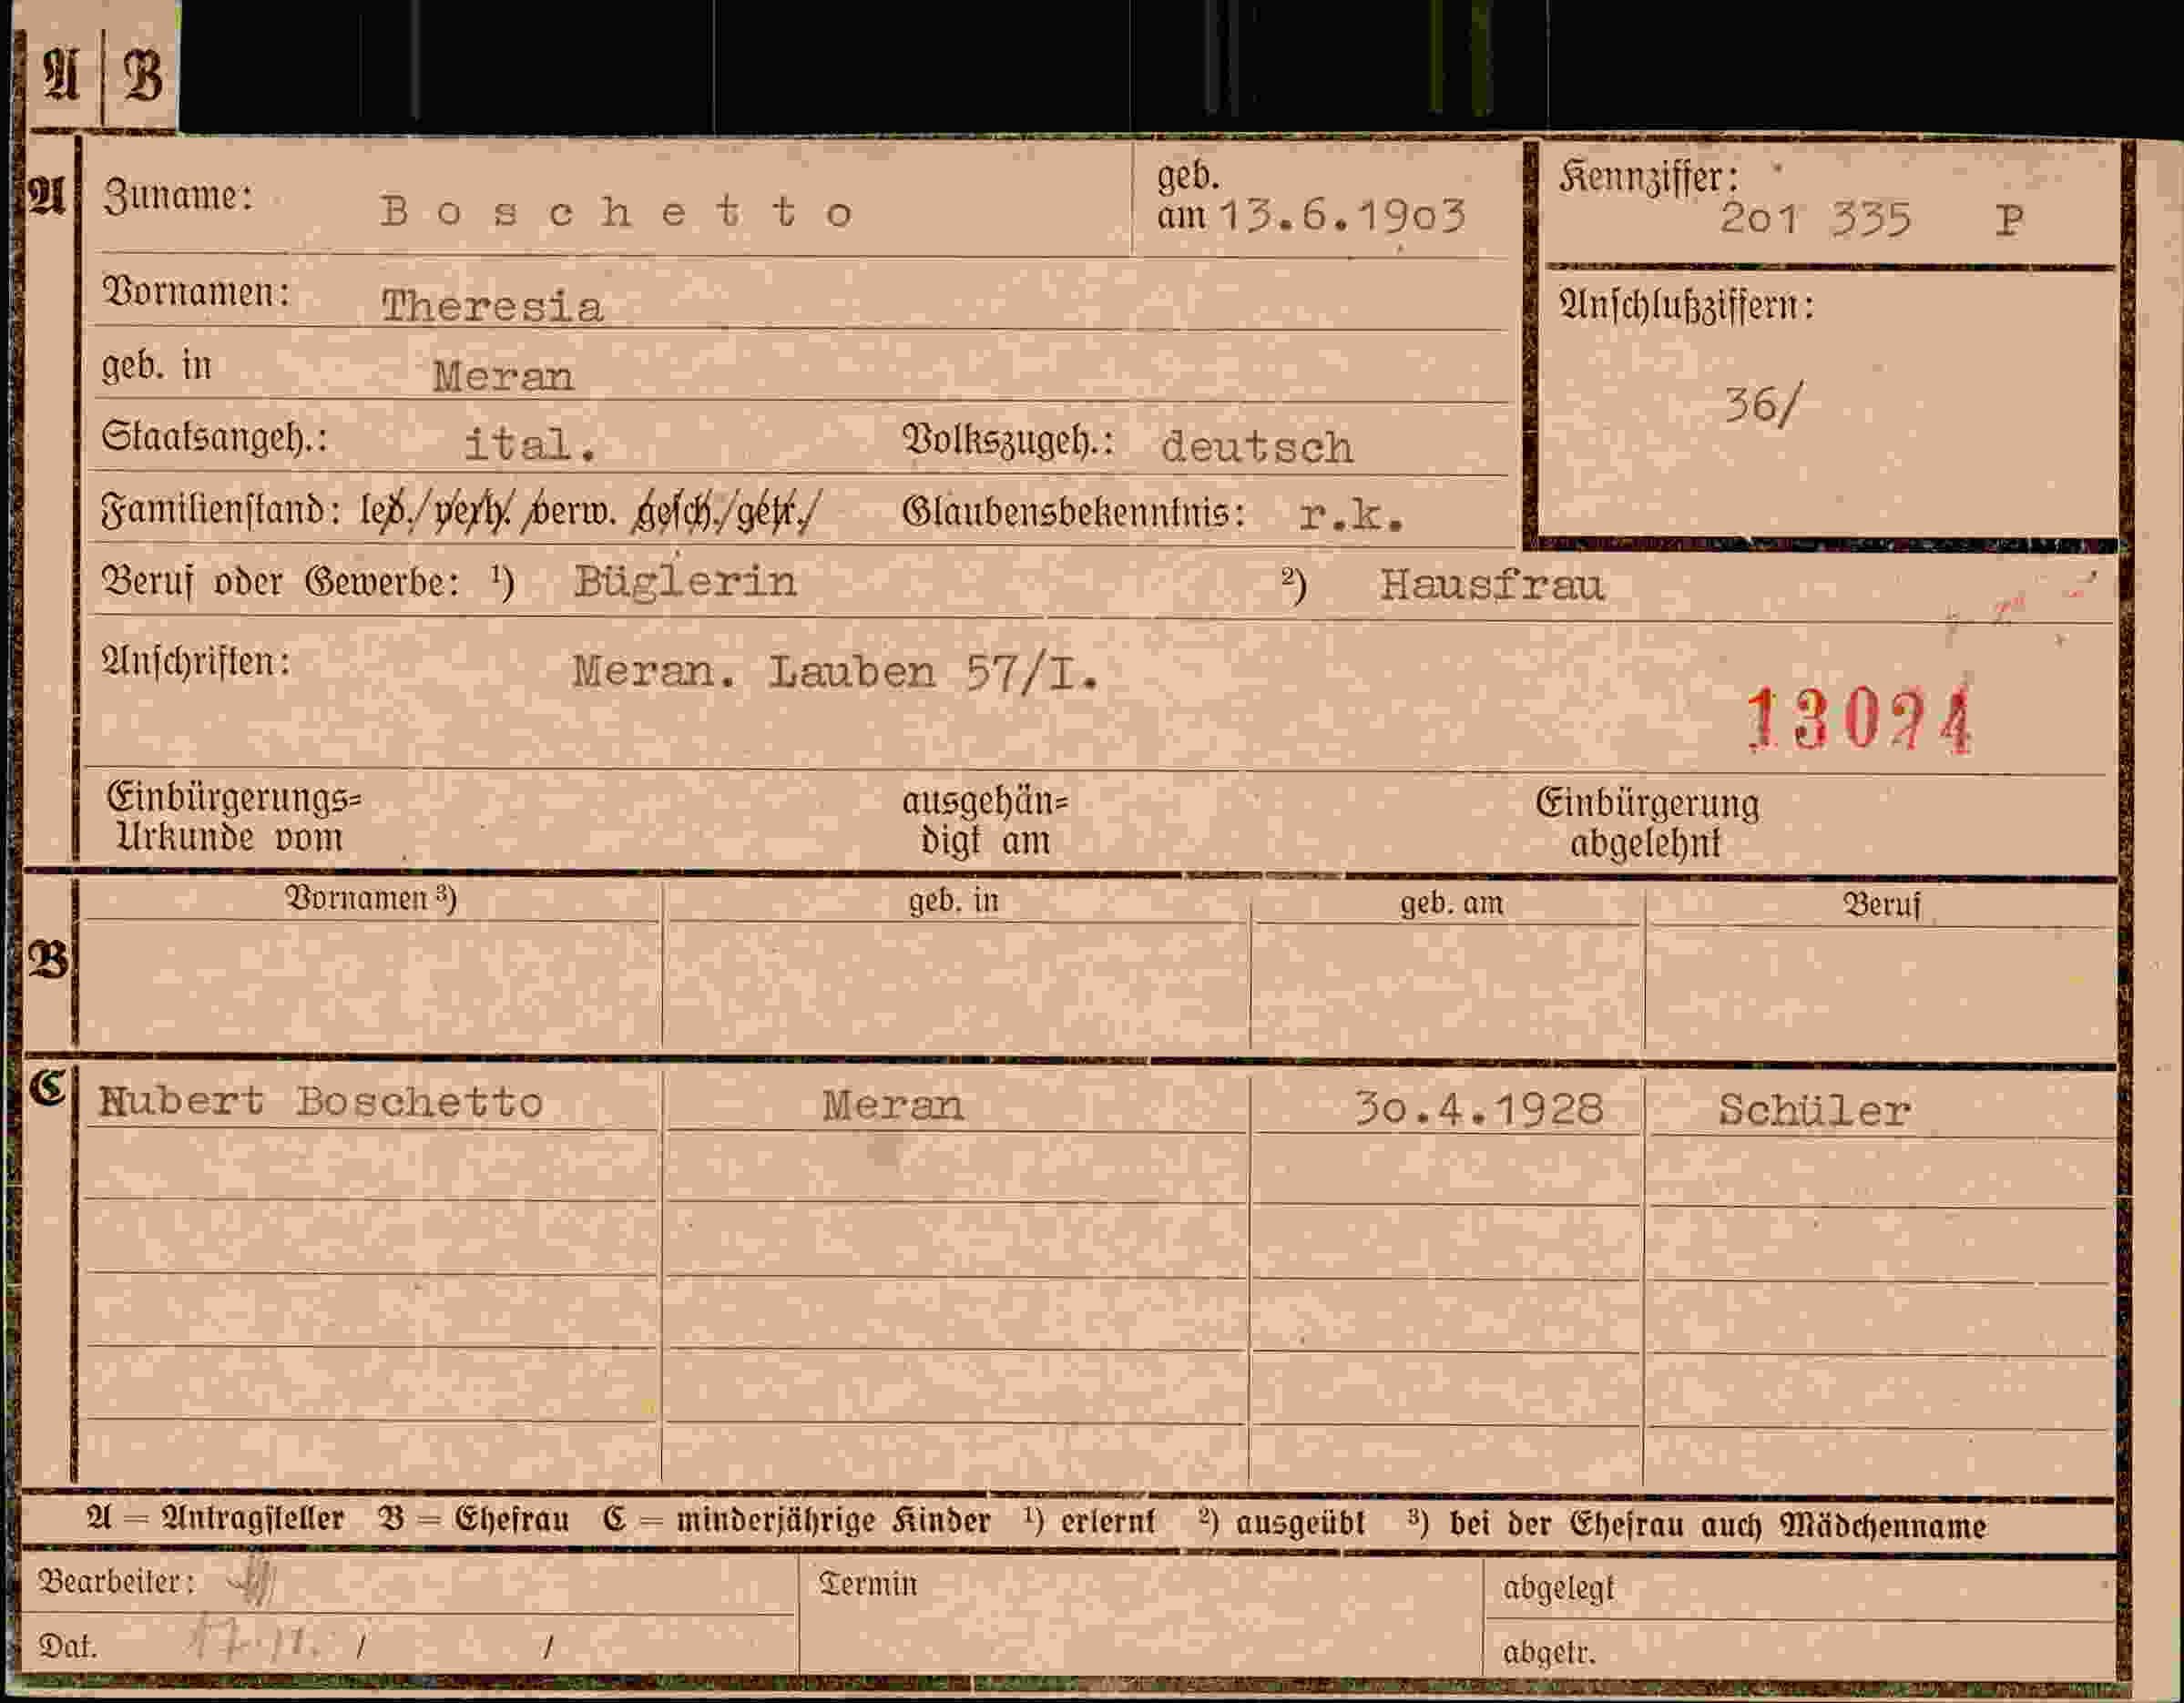 A B
A Zuname: Boschetto geb. am 13.6.1903 Kennziffer: 201 335 P
Vornamen: Theresia Anschlußziffern:
geb. in Meran 36/
Staatsangeh.: ital. Volkszugeh.: deutsch
Familienstand: led./verh. verw. gesch./getr./ Glaubensbekenntnis: r.k.
Beruf oder Gewerbe: ¹) Büglerin ²) Hausfrau
Anschriften: Meran. Lauben 57/I.
13024
Einbürgerungs= ausgehän= Einbürgerung
Urkunde vom digt am abgelehnt
Vornamen ³) geb. in geb. am Beruf
B
C Hubert Boschetto Meran 30.4.1928 Schüler
A = Antragsteller B = Ehefrau C = minderjährige Kinder ¹) erlernt ²) ausgeübt ³) bei der Ehefrau auch Mädchenname
Bearbeiter: Termin abgelegt
Dat. 17.11. / / abgetr.